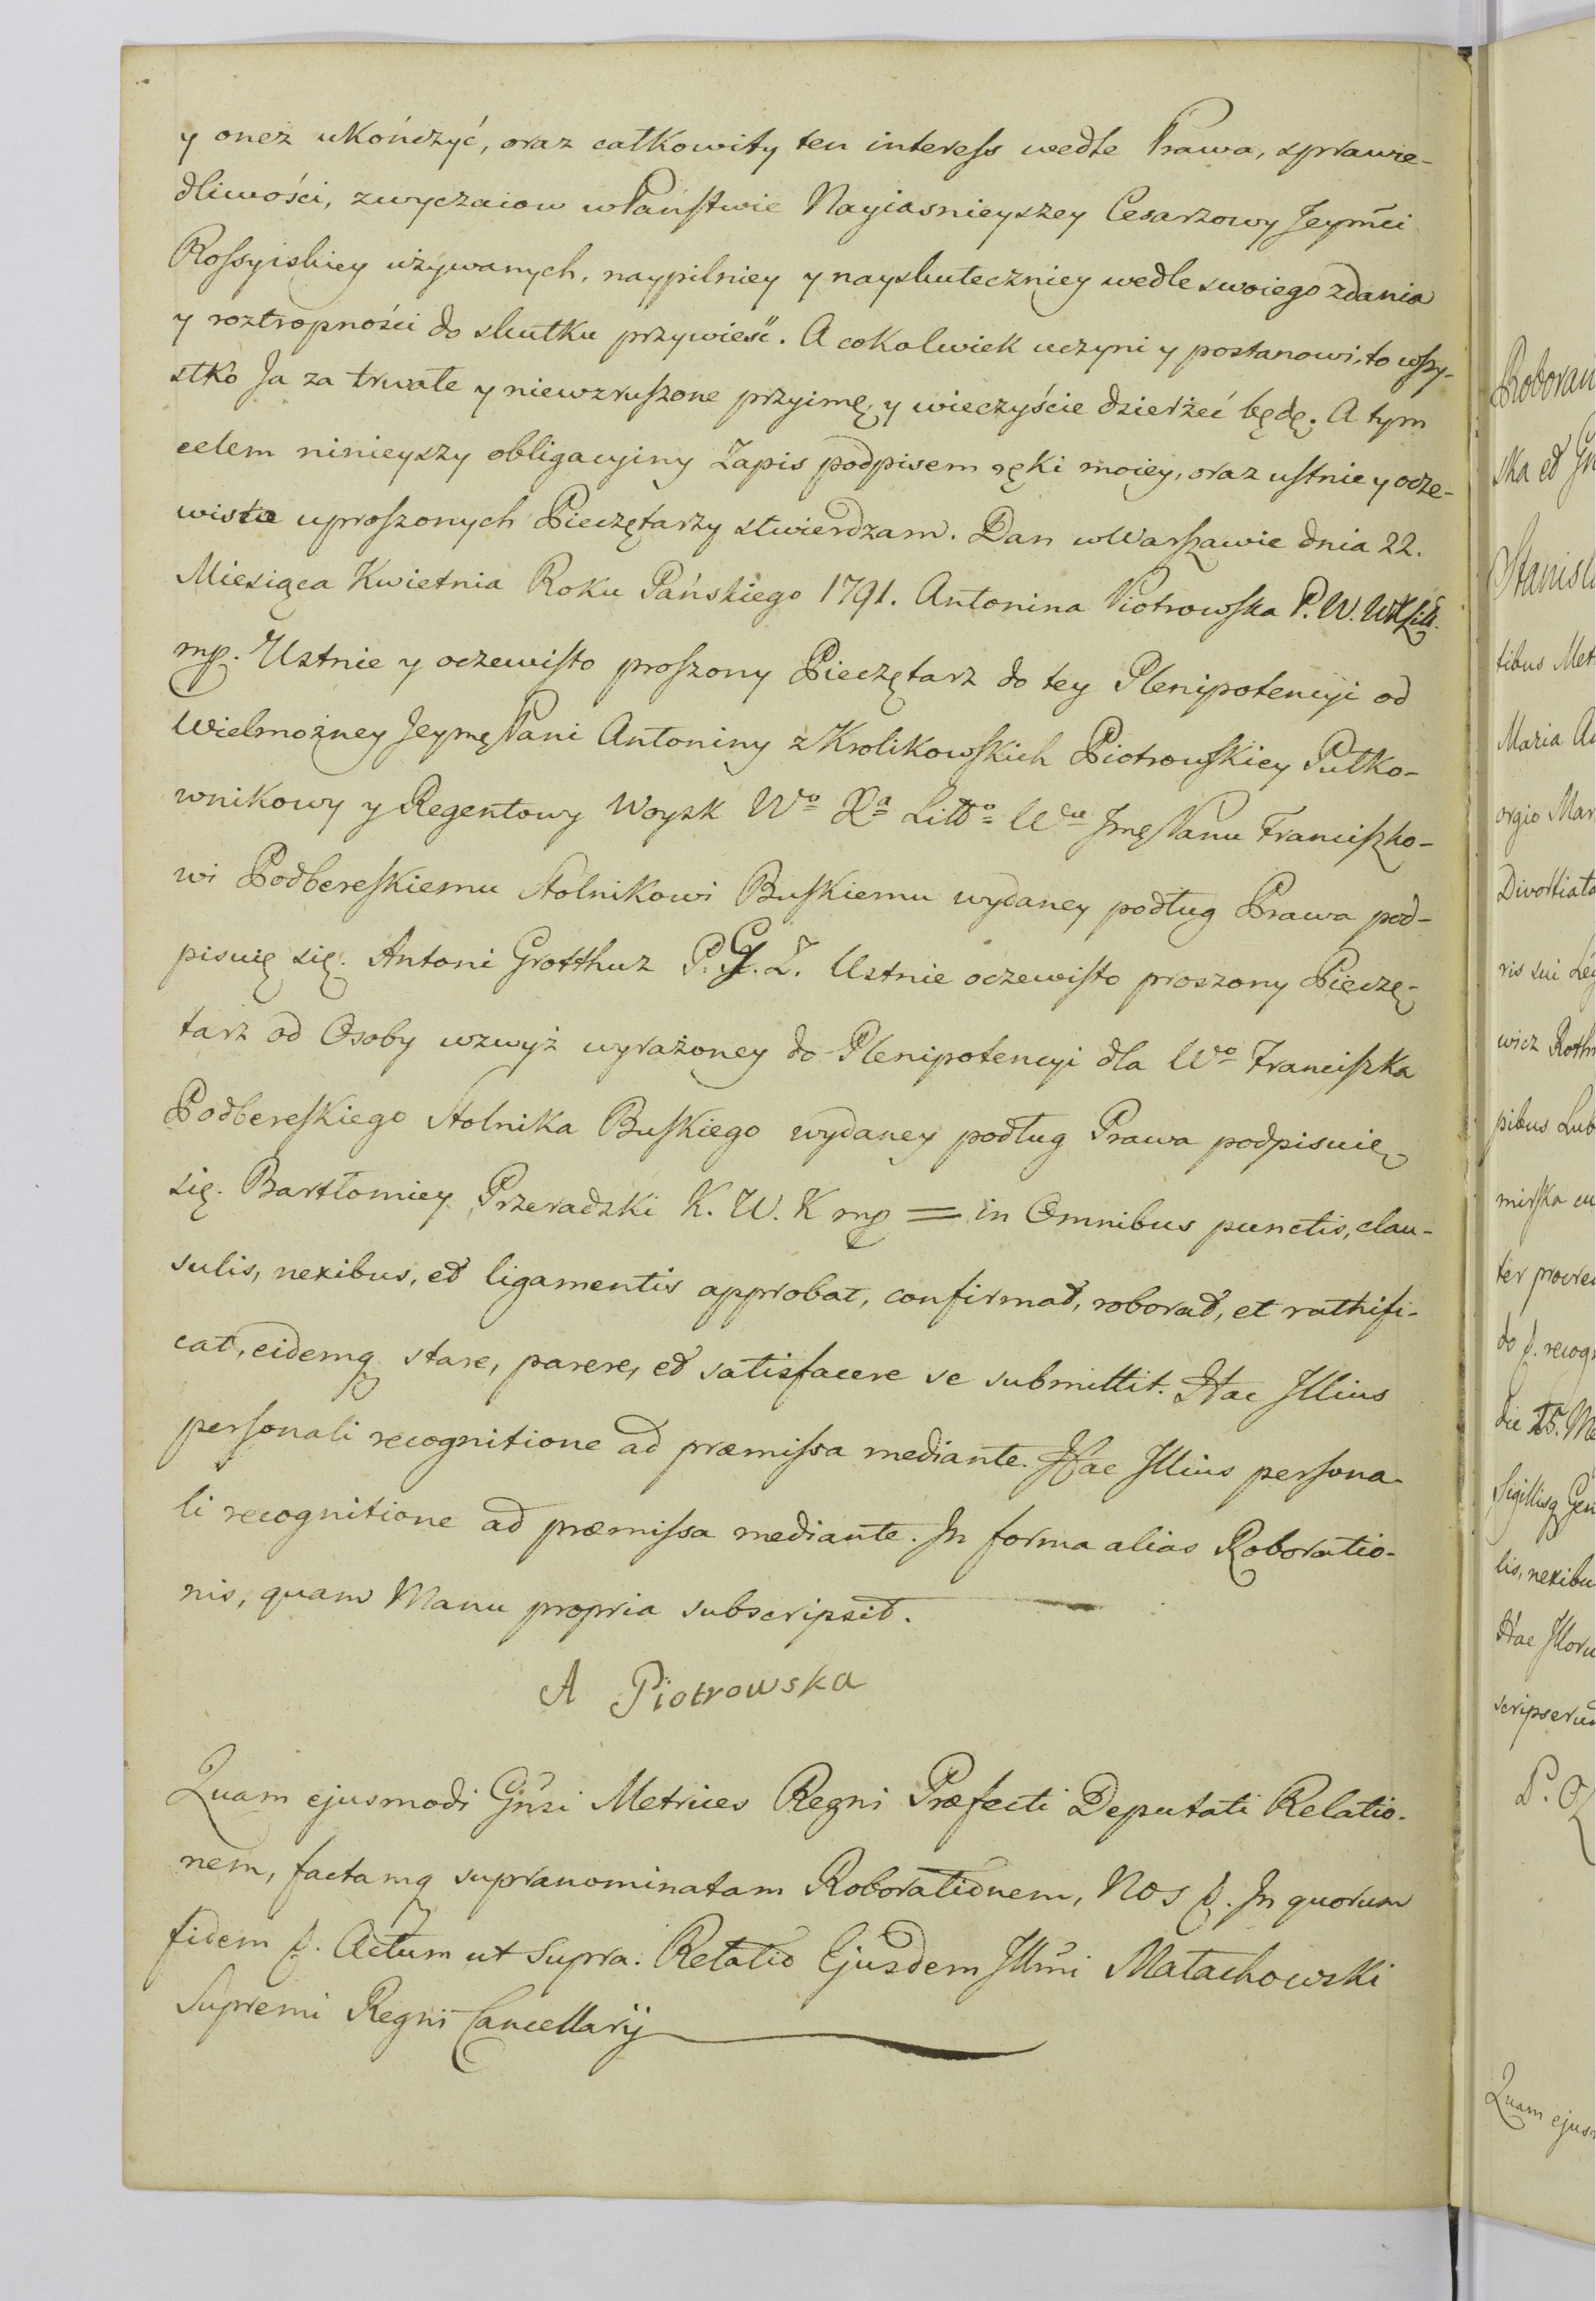 y onez ukończyć, oraz całkowity ten interess wedle Prawa, sprawie-
dliwości, zwyczaiow w Państwie Nayiasnieyszey Cesarzowy Jeymci
Rossyiskiey używanych, naypilniey y nayskuteczniey wedle swoiego zdania
y roztropności do skutku przywieść. A cokolwiek uczyni y postanowi, to wszy-
stko Ja za trwałe y niewzruszone przyimę, y wieczyście dzierżeć będę. A tym
celem ninieyszy obligacyiny Zapis podpisem ręki moiey, oraz ustnie y ocze-
wisto uproszonych Pieczętarzy stwierdzam. Dan w Warszawie dnia 22.
Miesiąca Kwietnia Roku Pańskiego 1791. Antonina Piotrowska P. W.
mp. Ustnie y oczewisto proszony Pieczętarz do tey Plenipotencyi od
Wielmożney Jeymę Pani Antoniny z Krolikowskich Piotrowskiey Pułko-
wnikowy y Regentowy Woysk Wo Xa Litto Wu Jmę Panu Franciszko-
wi Podbereskiemu Stolnikowi Buskiemu wydaney podług Prawa pod-
pisuię się. Antoni Grotthuz P. G. Z. Ustnie oczewisto proszony Pieczę-
tarz od Osoby wzwyż wyrażoney do Plenipotencyi dla Wo Franciszka
Podbereskiego Stolnika Buskiego wydaney podług Prawa podpisuię
się. Bartłomiey Przeradzki K. W. K mp = in Omnibus punctis, clau-
sulis, nexibus, et ligamentis approbat, confirmat, roborat, et rathifi-
cat, eidemq stare, parere, et satisfacere se submittit. Hac Illius
personali recognitione ad præmissa mediante. Hac Illius persona-
li recognitione ad præmissa mediante. In forma alias Roboratio-
nis, quam Manu propria subscripsit.
A Piotrowska
Quam ejusmodi Gnsi Metrices Regni Præfecti Deputati Relatio-
nem, factamq supranominatam Roborationem, Nos p. In quorum
fidem p. Actum ut Supra. Relatio Ejusdem Illmi Małachowski
Supremi Regni Cancellarij
Roboran
ska et
Stanisl
tibus Met
Maria
orgio Mar
Divortiata
ris sui Leg
wicz Rothm
pibus Lub
mirska cu
ter procre
do p. recog
die 15. M
Sigillisq Gen
lis, nexibu
Hac Illoru
scripseru
P.
Quam ejus